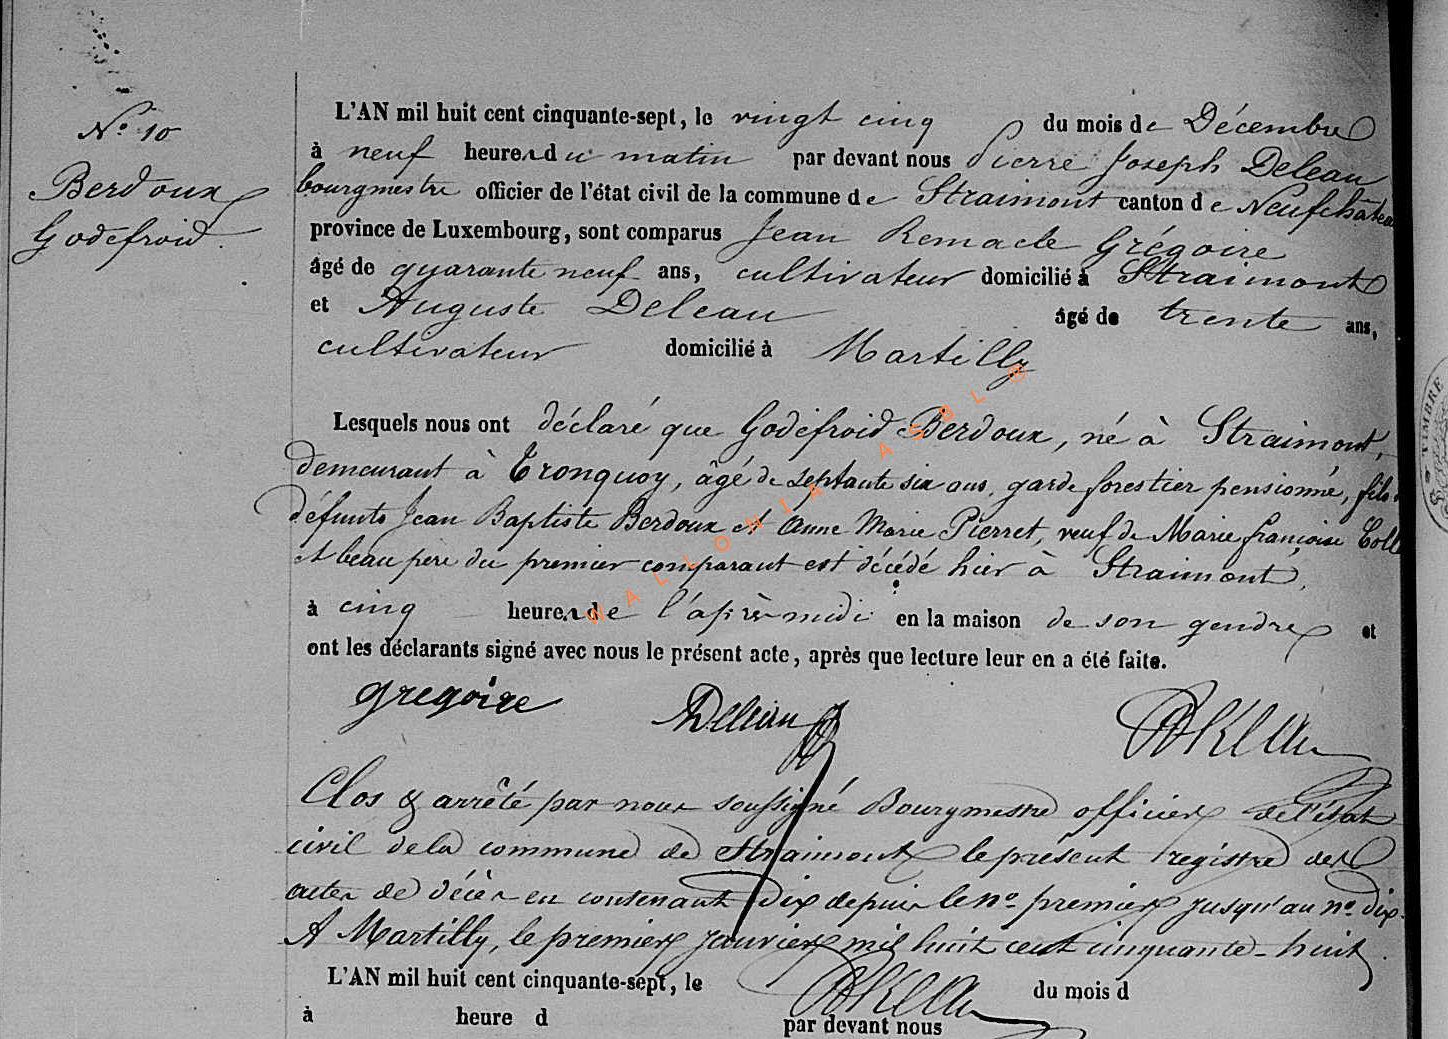 N° 10
Berdoux
Godefroid.
L'AN mil huit cent cinquante-sept, le vingt cinq du mois de Décembre
à neuf heures du matin par devant nous Pierre Joseph Deleau
bourgmestre officier de l'état civil de la commune de Straimont canton de Neufchâteau
province de Luxembourg, sont comparus Jean Remacle Grégoire
âgé de quarante neuf ans, cultivateur domicilié à Straimont
et Auguste Deleau âgé de trente ans,
cultivateur domicilié à Martilly
Lesquels nous ont déclaré que Godefroid Berdoux, né à Straimont,
demeurant à Tronquoy, âgé de septante six ans, garde forestier pensionné, fils
défunts Jean Baptiste Berdoux et Anne Marie Pierret, veuf de Marie françoise
et beau père du premier comparant est décédé hier à Straimont,
à cinq heures de l'après midi en la maison de son gendre et
ont les déclarants signé avec nous le présent acte, après que lecture leur en a été faite.
gregoire Deleau
Clos & arrêté par nous soussigné Bourgmestre officier de l'état
civil de la commune de Straimont le présent registre des
actes de décès en contenant dix depuis le n° premier jusqu'au n° dix.
A Martilly, le premier janvier mil huit cent cinquante-huit.
L'AN mil huit cent cinquante-sept, le du mois d
à heure d par devant nous
WALLONIA ASBL ©
TIMBRE